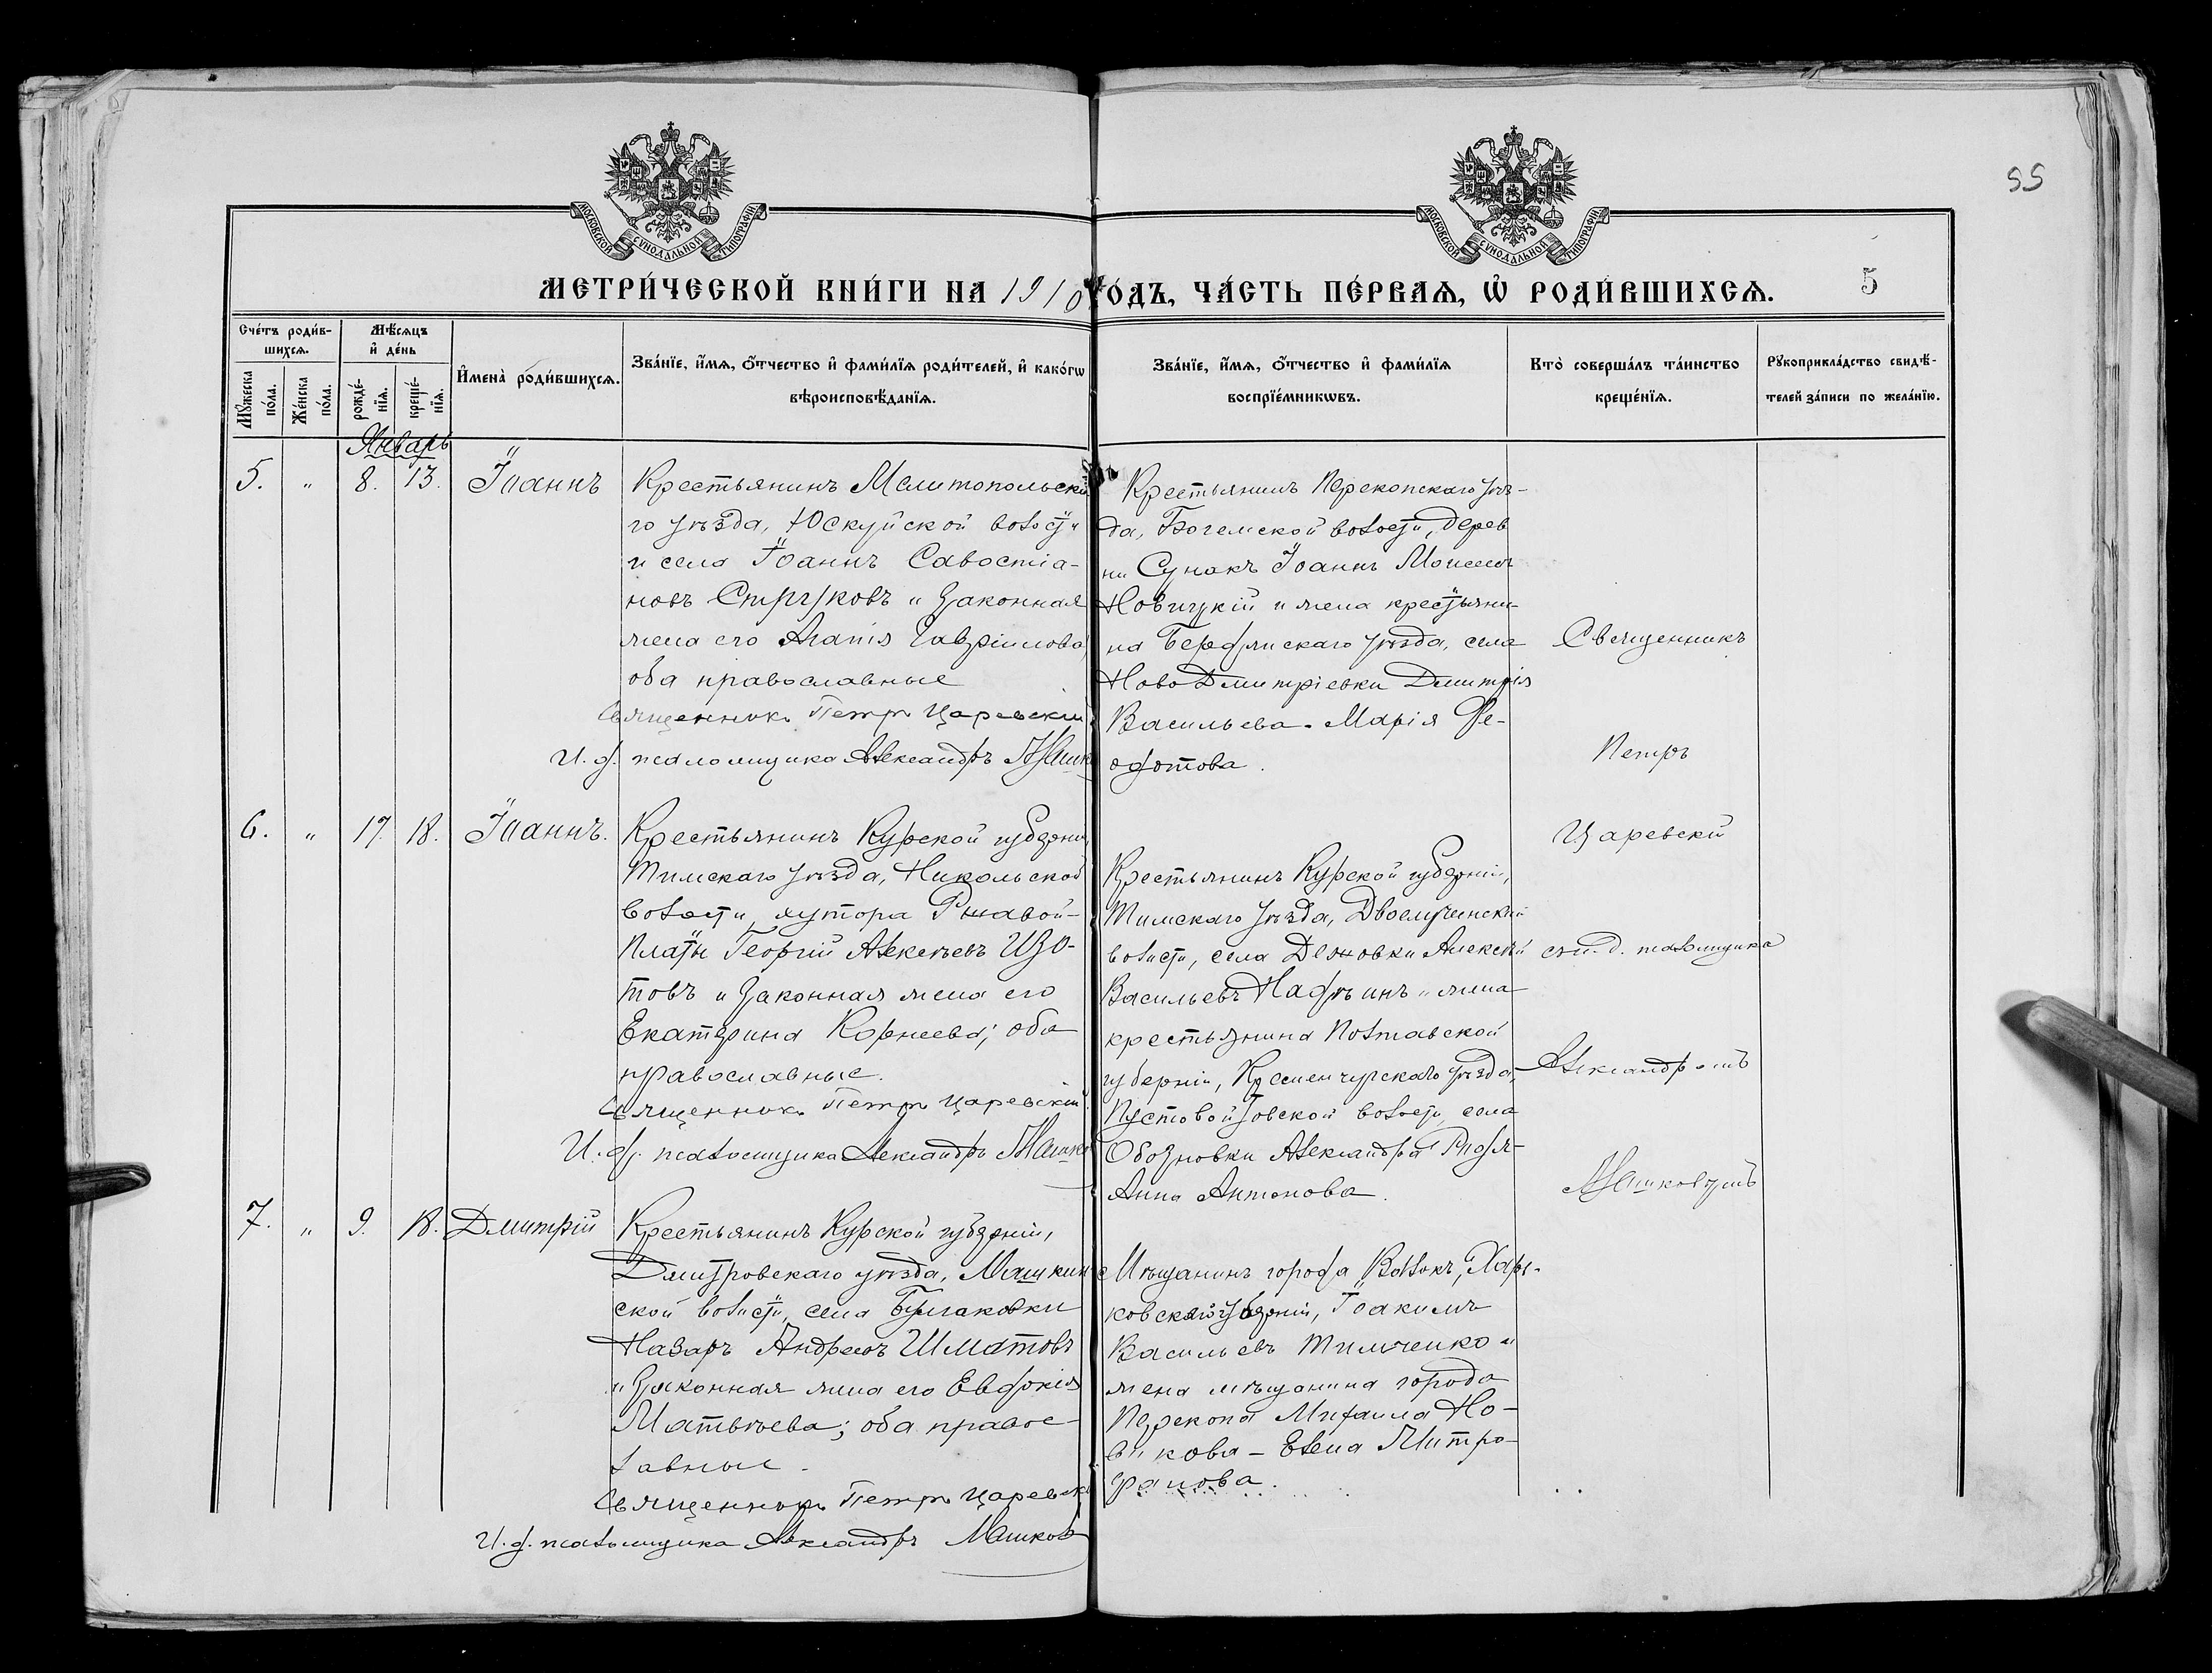 55
МОСКОВСКОЙ СѴНОДАЛЬНОЙ ТИПОГРАФІИ
МОСКОВСКОЙ СѴНОДАЛЬНОЙ ТИПОГРАФІИ
МЕТРИ́ЧЕСКОЙ КНИ́ГИ НА 1910 ГО́ДЪ, ЧА́СТЬ ПЕ́РВАѦ, Ѡ҆ РОДИ́ВШИХСѦ.
5
Сче́тъ роди́в-
шихсѧ.
Мꙋ́жеска по́ла.
Же́нска по́ла.
Мѣ́сѧцъ
и҆ де́нь
рожде́-
нїѧ.
креще́-
нїѧ.
И҆мена̀ роди́вшихсѧ.
Зва́нїе, и҆́мѧ, ѻ҆́тчество и҆ фами́лїѧ роди́телей, и҆ како́гѡ
вѣроисповѣ́данїѧ.
Зва́нїе, и҆́мѧ, ѻ҆́тчество и҆ фами́лїѧ
воспрїе́мникѡвъ.
Кто̀ соверша́лъ та́инство
креще́нїѧ.
Рꙋкоприкла́дство свидѣ́-
телей за́писи по жела́нїю.
Январь
5. " 8. 13. Іоаннъ
Крестьянинъ Мелитопольска
го уѣзда, Юскуйской волости
и села Іоаннъ Савостіа-
новъ Струковъ и законная
жена его Агапія Гавріилова,
оба православные
Священникъ Петръ Царевскій
И. д. псаломщика Александръ Машк
Крестьянинъ Перекопскаго уѣз-
да, Богемской волости, дерев
ни Сунакъ Іоаннъ Моисеевъ
Новицкій и жена крестьяни-
на Бердянскаго уѣзда, села
НовоДмитріевки Дмитрія
Васильева - Марія Ѳе-
одотова.
6. " 17. 18. Іоаннъ.
Крестьянинъ Курской губерніи,
Тимскаго уѣзда, Никольской
волости, хутора Ржавой-
Платы Георгій Алексѣевъ Изо-
товъ и законная жена его
Екатерина Корнеева; оба
православные.
Священникъ Петръ Царевскій
И. д. псаломщика Александръ Машко
Крестьянинъ Курской губерніи,
Тимскаго уѣзда, Двоелучинской
волости, села Дежовки Алексѣй
Васильевъ и жена
крестьянина Полтавской
губерніи, Кременчугскаго уѣзда,
Пустовойтовской волости, села
Обозновки Александра
Анна Антонова.
7. " 9. 18. Дмитрій
Крестьянинъ Курской губерніи,
Дмитровскаго уѣзда, Машкин
ской волости, села
Назаръ Андреевъ Шматовъ
и законная жена его Евдокія
Матвѣева; оба правос-
лавные.
Священникъ Петръ Царевск
И. д. псаломщика Александръ Машков
Мѣщанинъ города Валокъ, Харь-
ковской губерніи, Іоакимъ
Васильевъ Тимченко и
жена мѣщанина города
Перекопа Михаила Но-
викова - Елена Митро-
фанова.
Священникъ
Петръ
Царевскій
съ и. д. псаломщика
Александромъ
Машковымъ